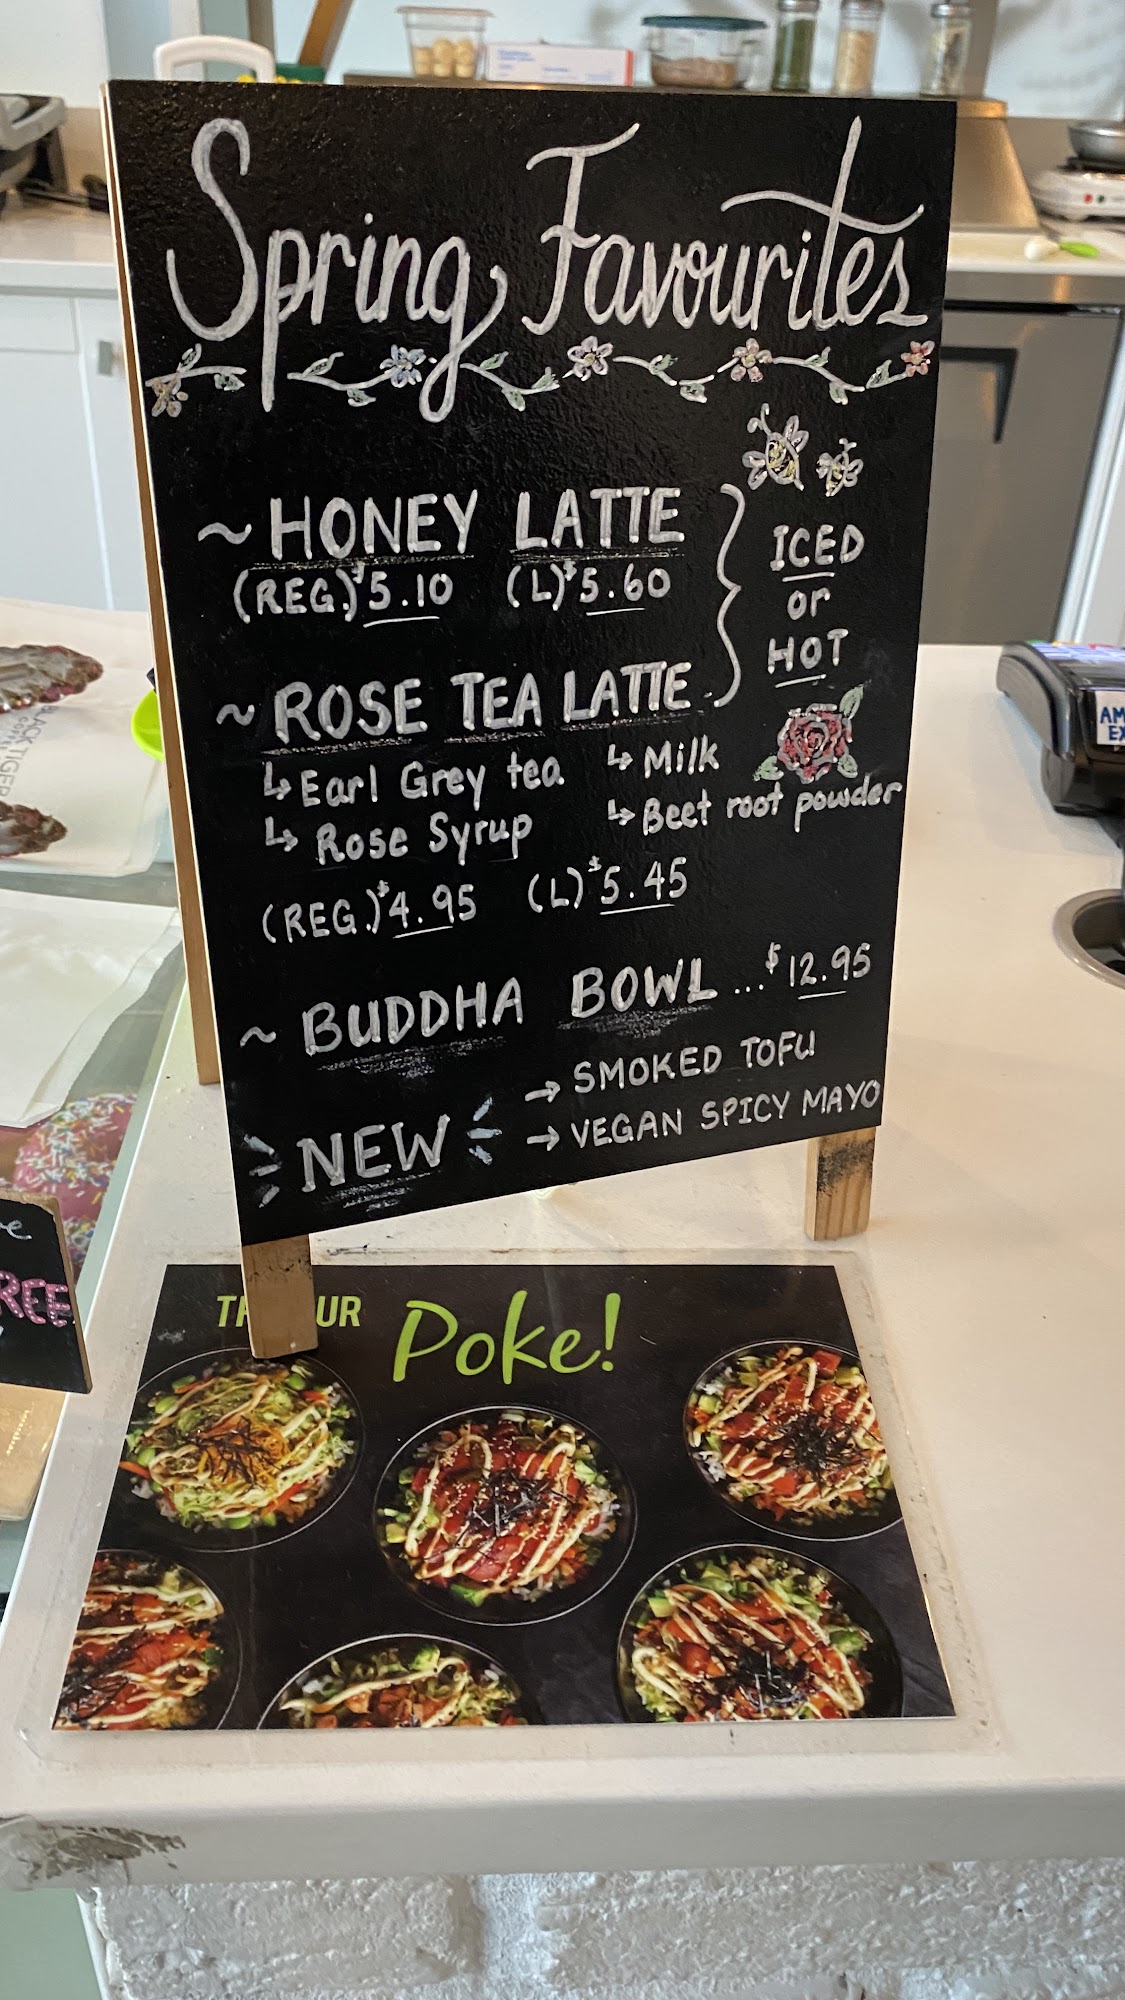 Spring Favourites
~ HONEY LATTE
(REG.) $5.10 (L) $5.60
ICED
or
HOT
~ ROSE TEA LATTE
↳ Earl Grey tea ↳ Milk
↳ Rose Syrup ↳ Beet root powder
(REG.) $4.95 (L) $5.45
~ BUDDHA BOWL ... $12.95
→ SMOKED TOFU
NEW → VEGAN SPICY MAYO
UR Poke!
BLACK TIGER
AM
EX
REE